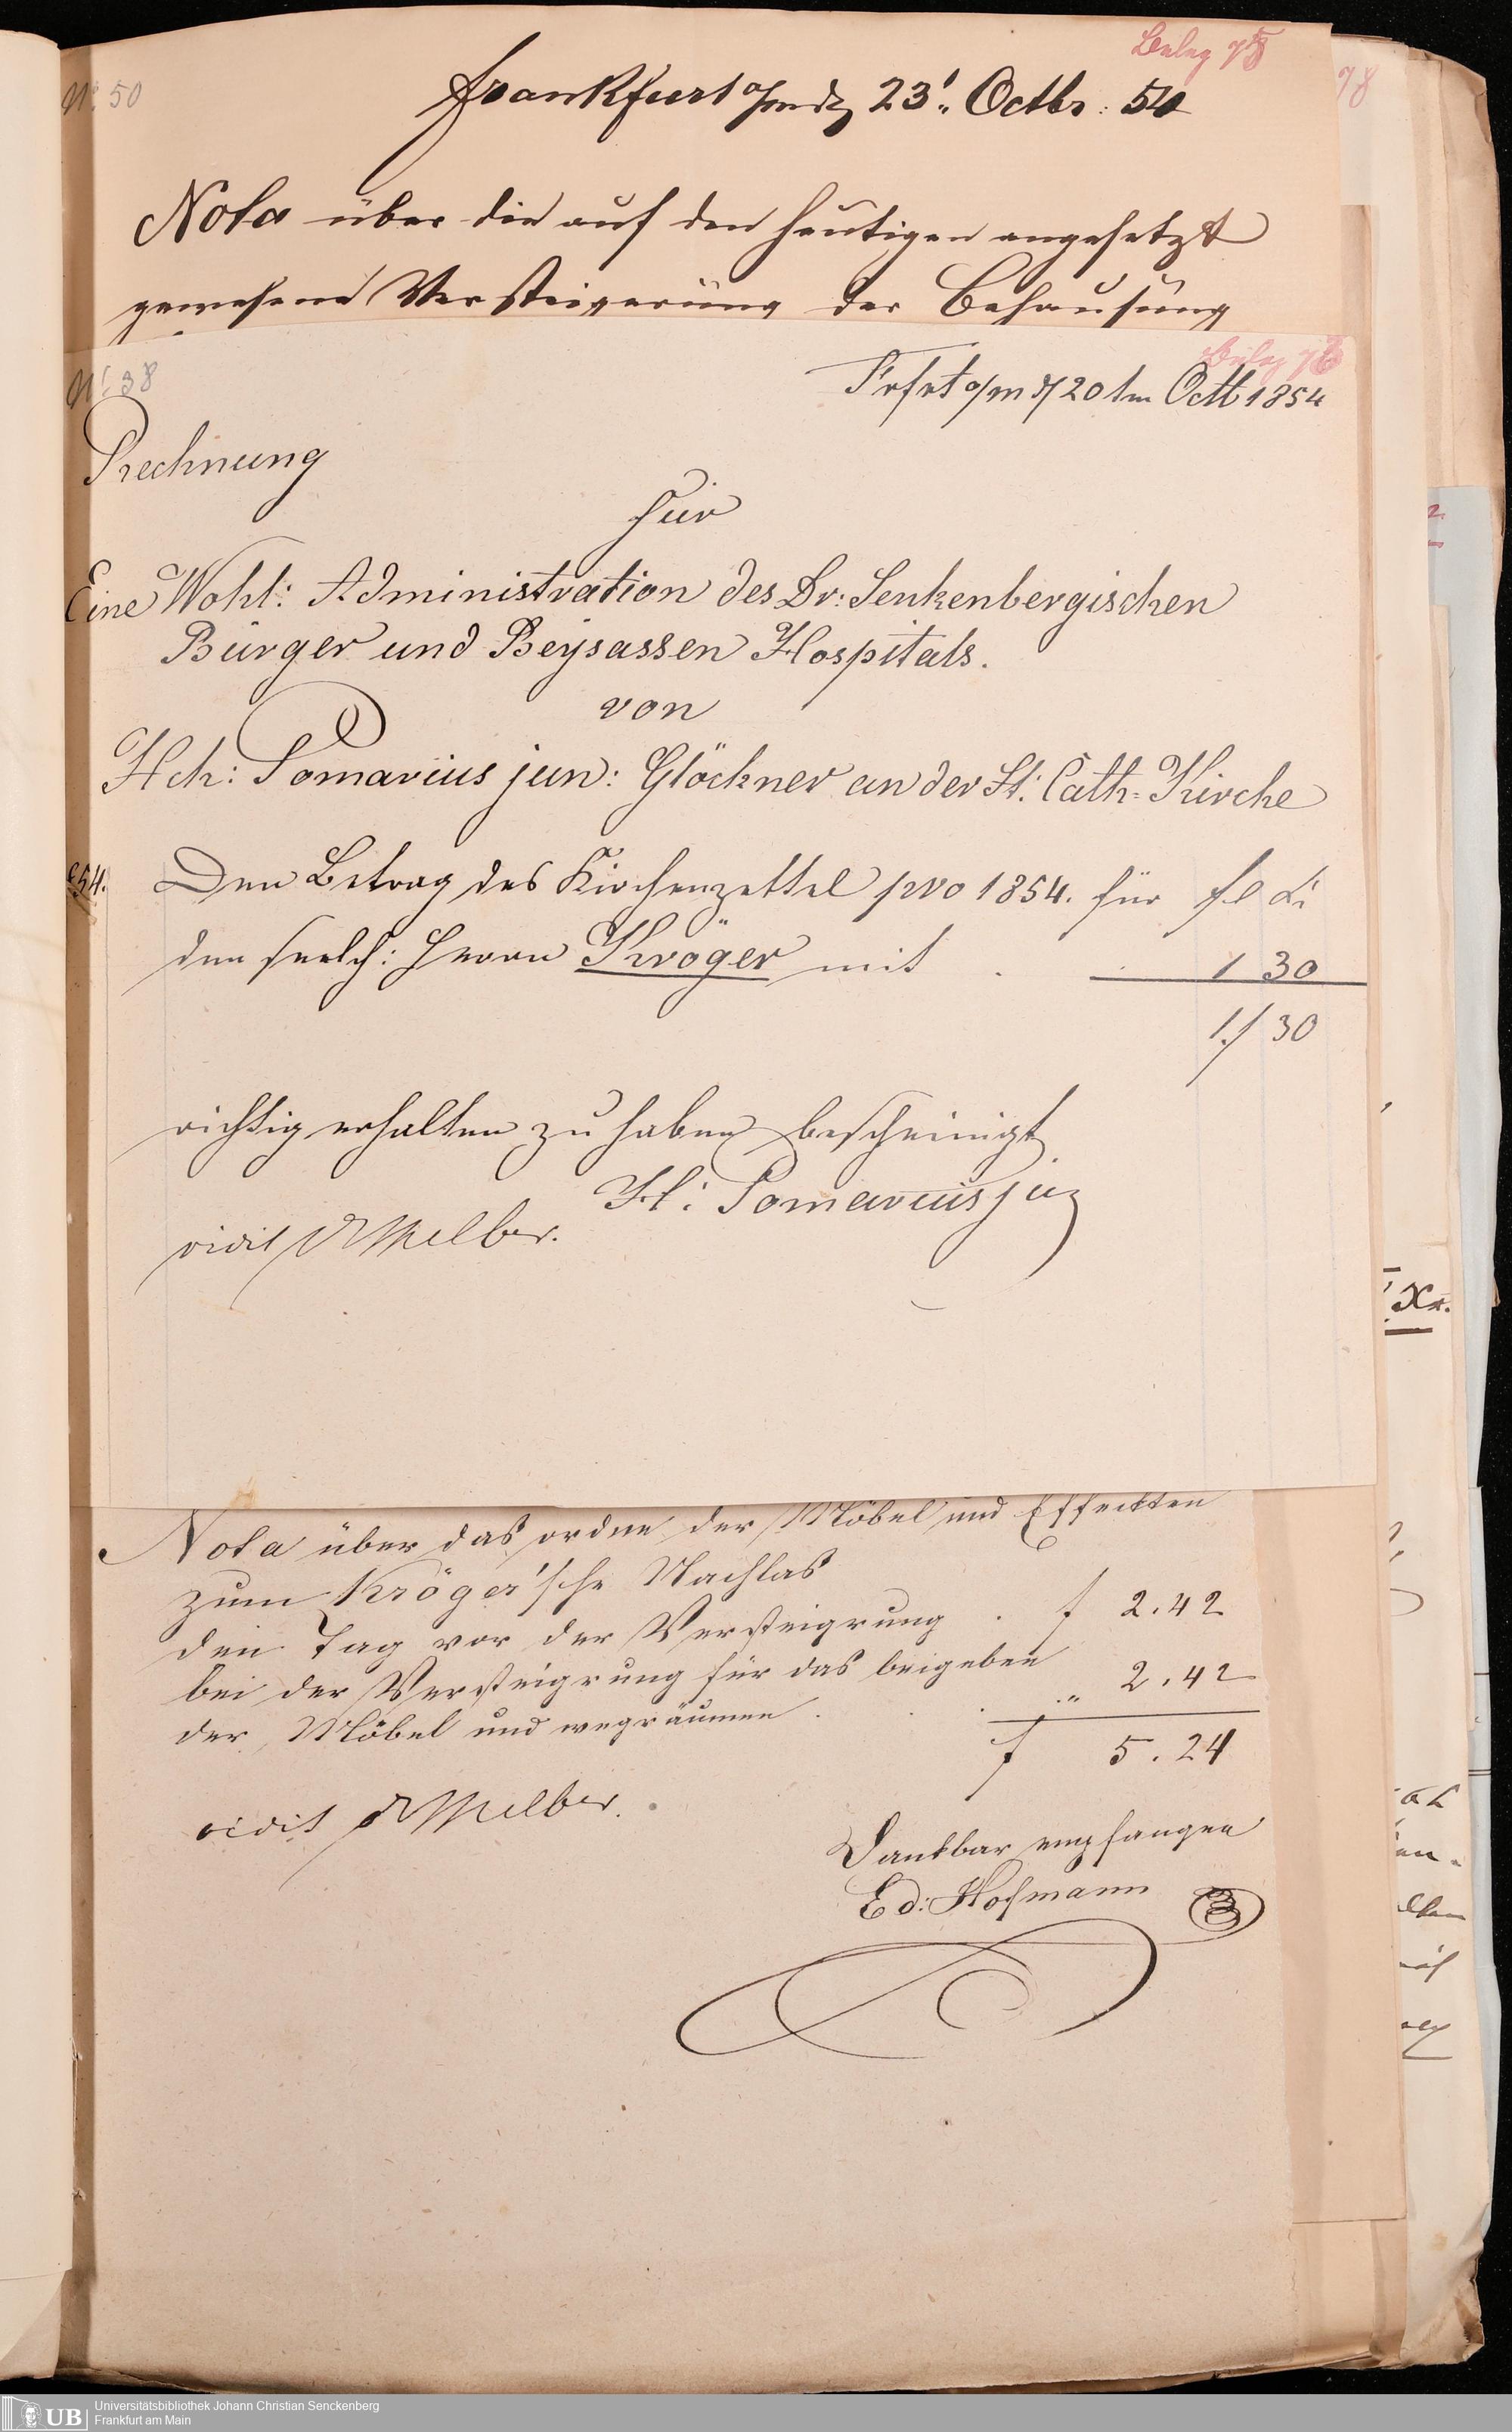 Beleg 78
No. 50
Frankfurt a/m d. 23t. Octbr: 54
Nota über die auf den heutigen angesetzt
gewesene Versteigerung der Behausung
78
No. 38
Beleg 76
Frfrt a/m d/ 20 tn Octb 1854
Rechnung
für
Eine Wohl: Administration des Dr: Senkenbergischen
Bürger und Beysassen Hospitals.
von
Hch: Pomarius jun: Glöckner an der St: Cath: Kirche
Den Betrag des Kirchenzettel pro 1854. für fl x
den seelg: Herrn Kröger mit . 1 30
1./ 30
richtig erhalten zu haben bescheinigt
H: Pomarius ju
vidit Dr Melber.
Nota über das ordne der Möbel und Effeckten
zum Kröger'sche Nachlas
den Tag vor der Versteigrung . f 2.42
bei der Versteigrung für das beigeben
der Möbel und wegräumen . . . " 2.42
f 5.24
vidit Dr Melber.
Dankbar empfangen
Ed: Hofmann
Xr.
UB
Universitätsbibliothek Johann Christian Senckenberg
Frankfurt am Main